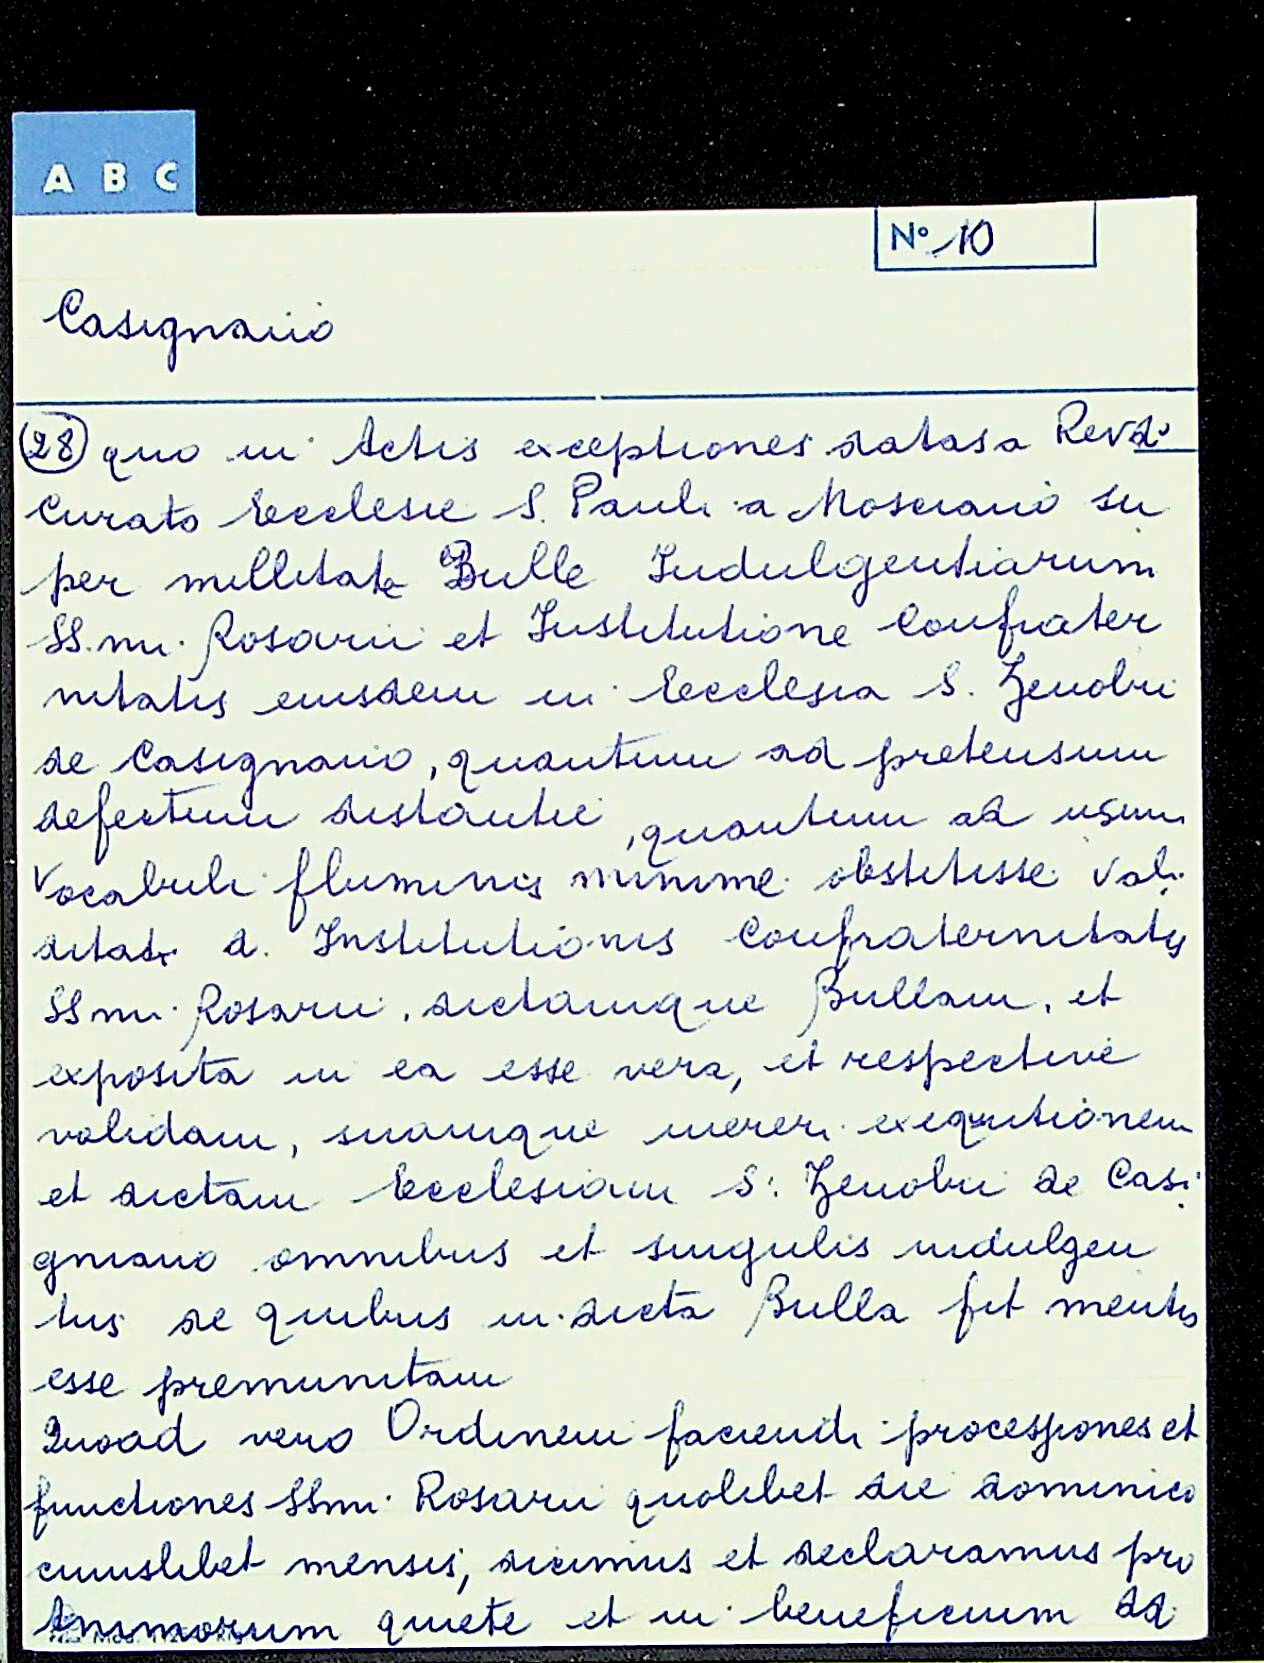 A B C
N° 10
Casignano
(28) quo in Actis exceptiones datas a Revdo
Curato Ecclesie S. Pauli a Mosciano su
per nullitate Bulle Indulgentiarum
SS.mi Rosarii et Institutione Confrater
nitatis eiusdem in Ecclesia S. Zenobii
de Casignano, quantum ad pretensum
defectum distantie, quantum ad usum
vocabuli fluminis minime obstetisse vali
ditati d. Institutionis Confraternitatis
SSmi Rosarii, dictamque Bullam, et
exposita in ea esse vera, et respective
validam, suamque mereri exequtionem
et dictam Ecclesiam S. Zenobii de Casi
gniano omnibus et singulis indulgen
tiis de quibus in dicta Bulla fit mentis
esse premunitam
Quoad vero Ordinem faciendi processiones et
functiones SSmi Rosarii quolibet die dominico
cuiuslibet mensis, dicimus et declaramus pro
Animorum quiete et in beneficium dd